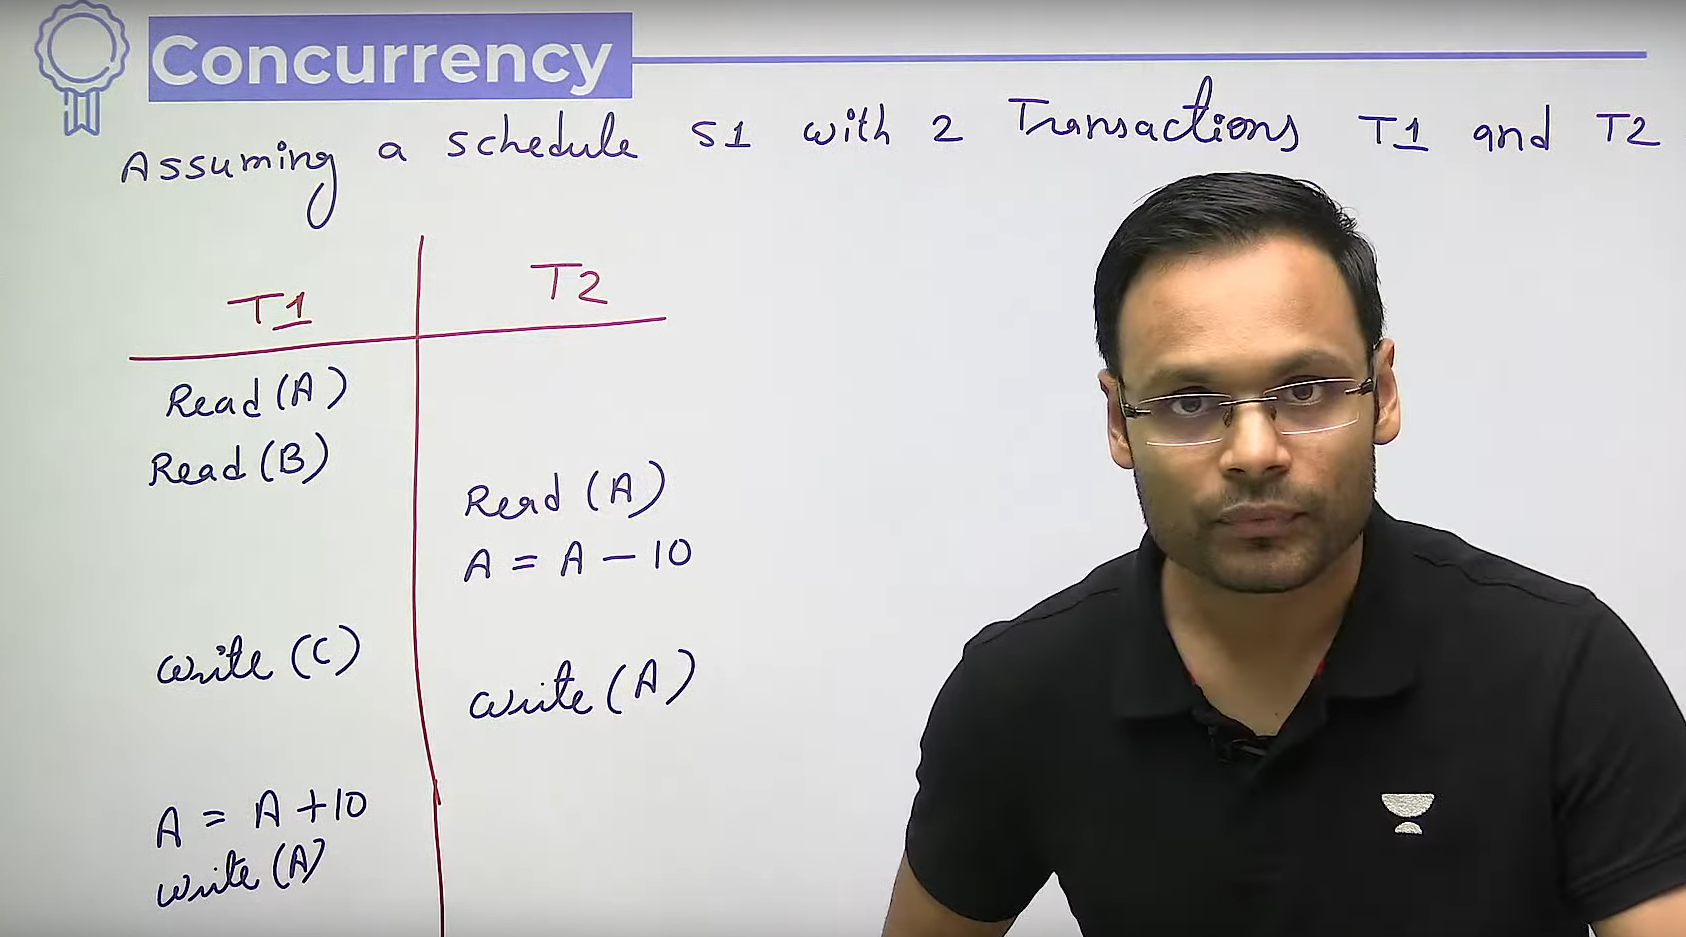 Concurrency
Assuming a schedule S1 with 2 Transactions T1 and T2
T1
T2
Read (A)
Read (B)
Read (A)
A = A - 10
write (C)
write (A)
A = A + 10
write (A)